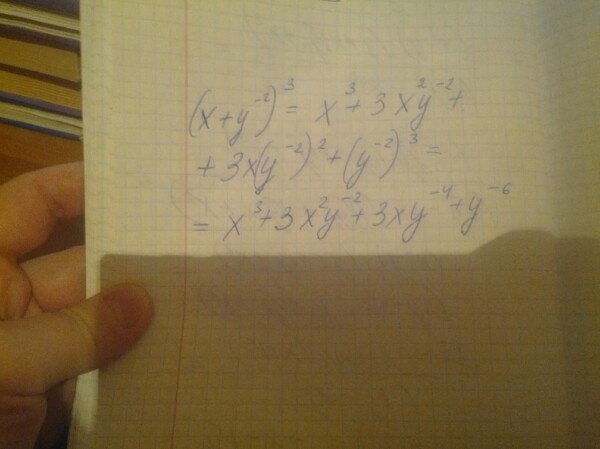 (x+y⁻²)³ = x³+3x²y⁻²+
+3x(y⁻²)²+(y⁻²)³ =
= x³+3x²y⁻²+3xy⁻⁴+y⁻⁶